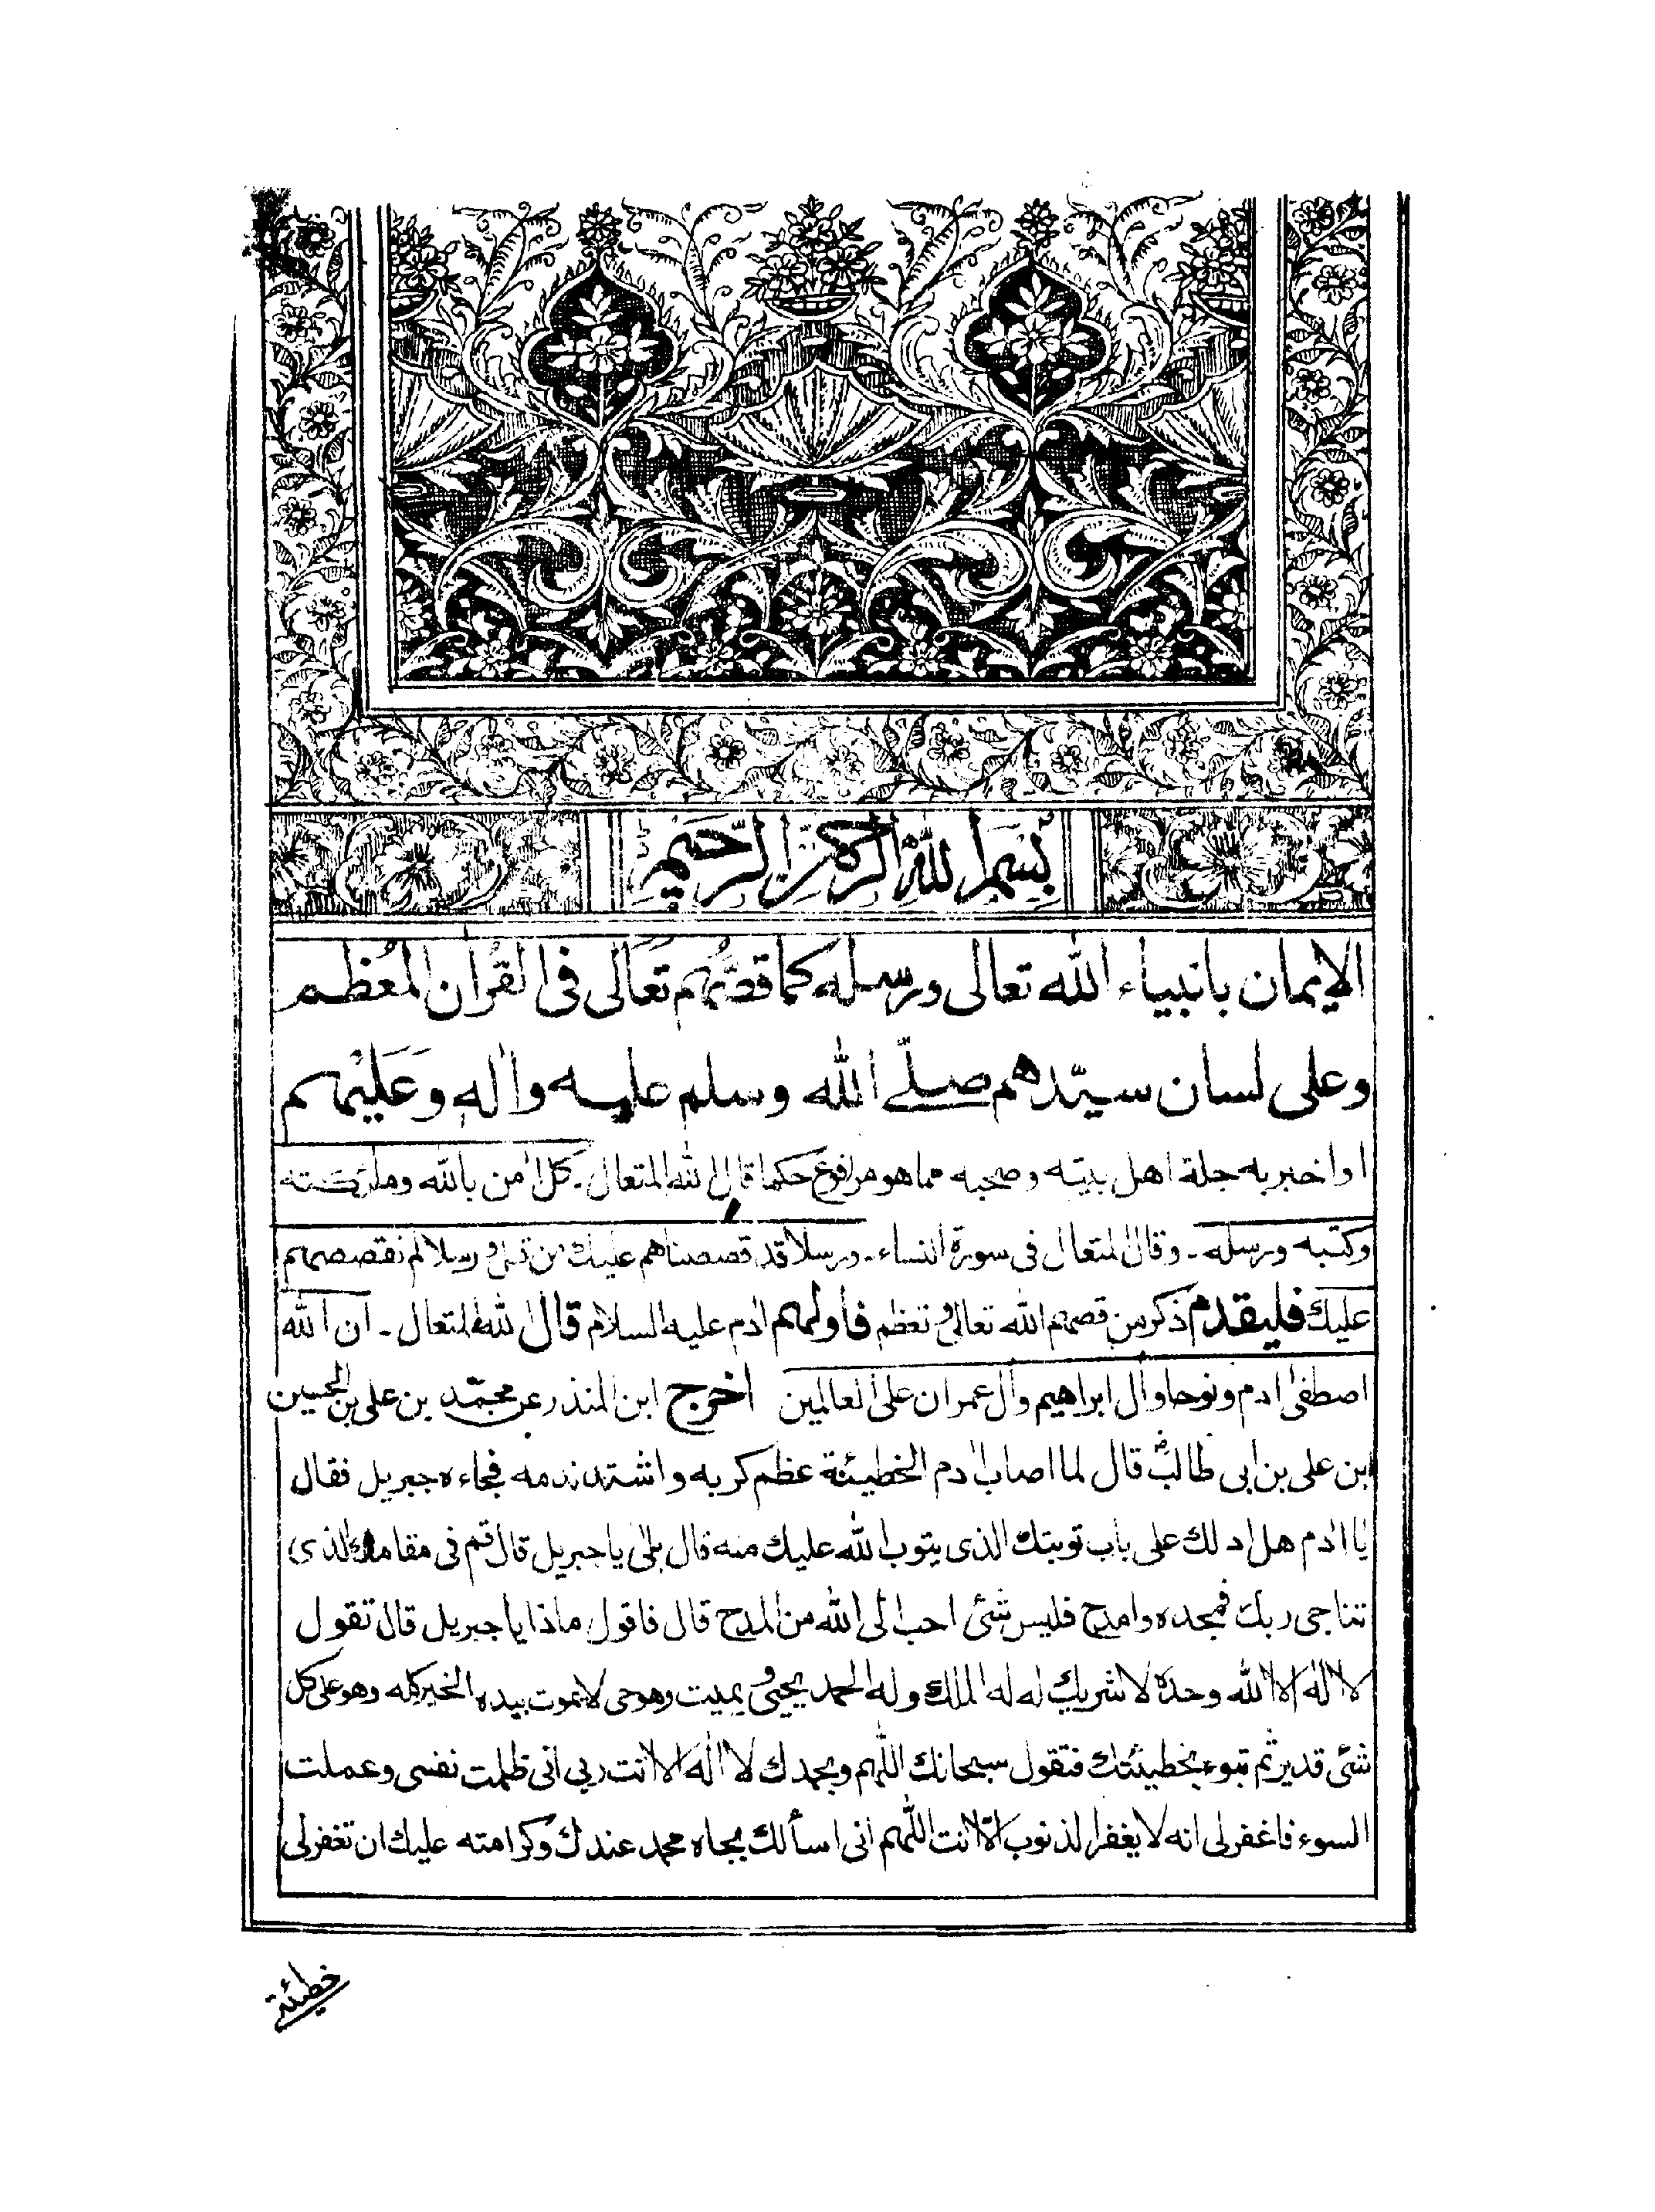 بسم الله الرحمن الرحيم
الايمان بانبياء الله تعالى ورسله كما قصّهم تعالى فى القران المعظم
وعلى لسان سيّدهم صلّے الله وسلم عليه واٰله وعليهم
او اخبر به جلة اهل بيته وصحبه مما هو مرفوع حكما قال الله المتعال ـ كل اٰمن بالله وملٰئكته
وكتبه ورسله ـ وقال المتعال فى سورة النساء ـ ورسلا قد قصصناهم عليك من قبل ورسلا لم نقصصهم
عليك فليقدم ذكر من قصهم الله تعالى وتعظم فاولهم اٰدم عليه السلام قال الله المتعال ـ ان الله
اصطفىٰ اٰدم ونوحا واٰل ابراهيم واٰل عمران على العالمين اخرج ابن المنذر عن محمّد بن على بن الحسين
بن على بن ابى طالبؓ قال لما اصاب اٰدم الخطيئة عظم كربه واشتد ندمه فجاءه جبريل فقال
يا اٰدم هل ادلك على باب توبتك الذى يتوب الله عليك منه قال بلىٰ يا جبريل قال قم فى مقامك الذى
تناجى ربك فمجده وامدح فليس شئ احب الى الله من المدح قال فاقول ماذا يا جبريل قال تقول
لا اله الا الله وحده لا شريك له له الملك وله الحمد يحيى ويميت وهو حى لا يموت بيده الخير كله وهو على كل
شئ قدير ثم تبوء بخطيئتك فتقول سبحانك اللهم وبحمدك لا اله الا انت ربى انى ظلمت نفسى وعملت
السوء فاغفر لى انه لا يغفر الذنوب الّا انت اللهم انى اسألك بجاه محمد عندك وكرامته عليك ان تغفر لى
خطيئتى